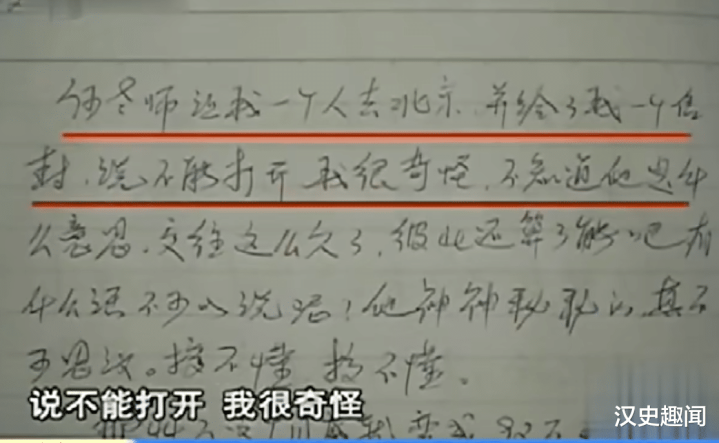 何老师让我一个人去北京,并给了我一个信
封,说不能打开 我很奇怪,不知道他是什
么意思,交往这么久了,彼此还算了解吧 有
什么话不可以说呢!他神神秘秘的,真不
可思议。搞不懂 搞不懂。
说不能打开 我很奇怪
汉史趣闻